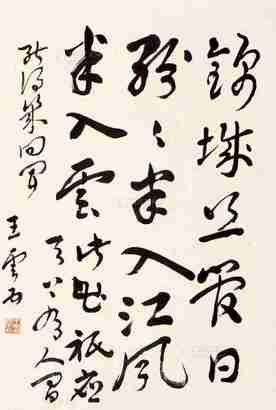 錦城丝管日
紛〻半入江風
半入雲此曲祇應
天上有人間
能得幾回聞
王雲石